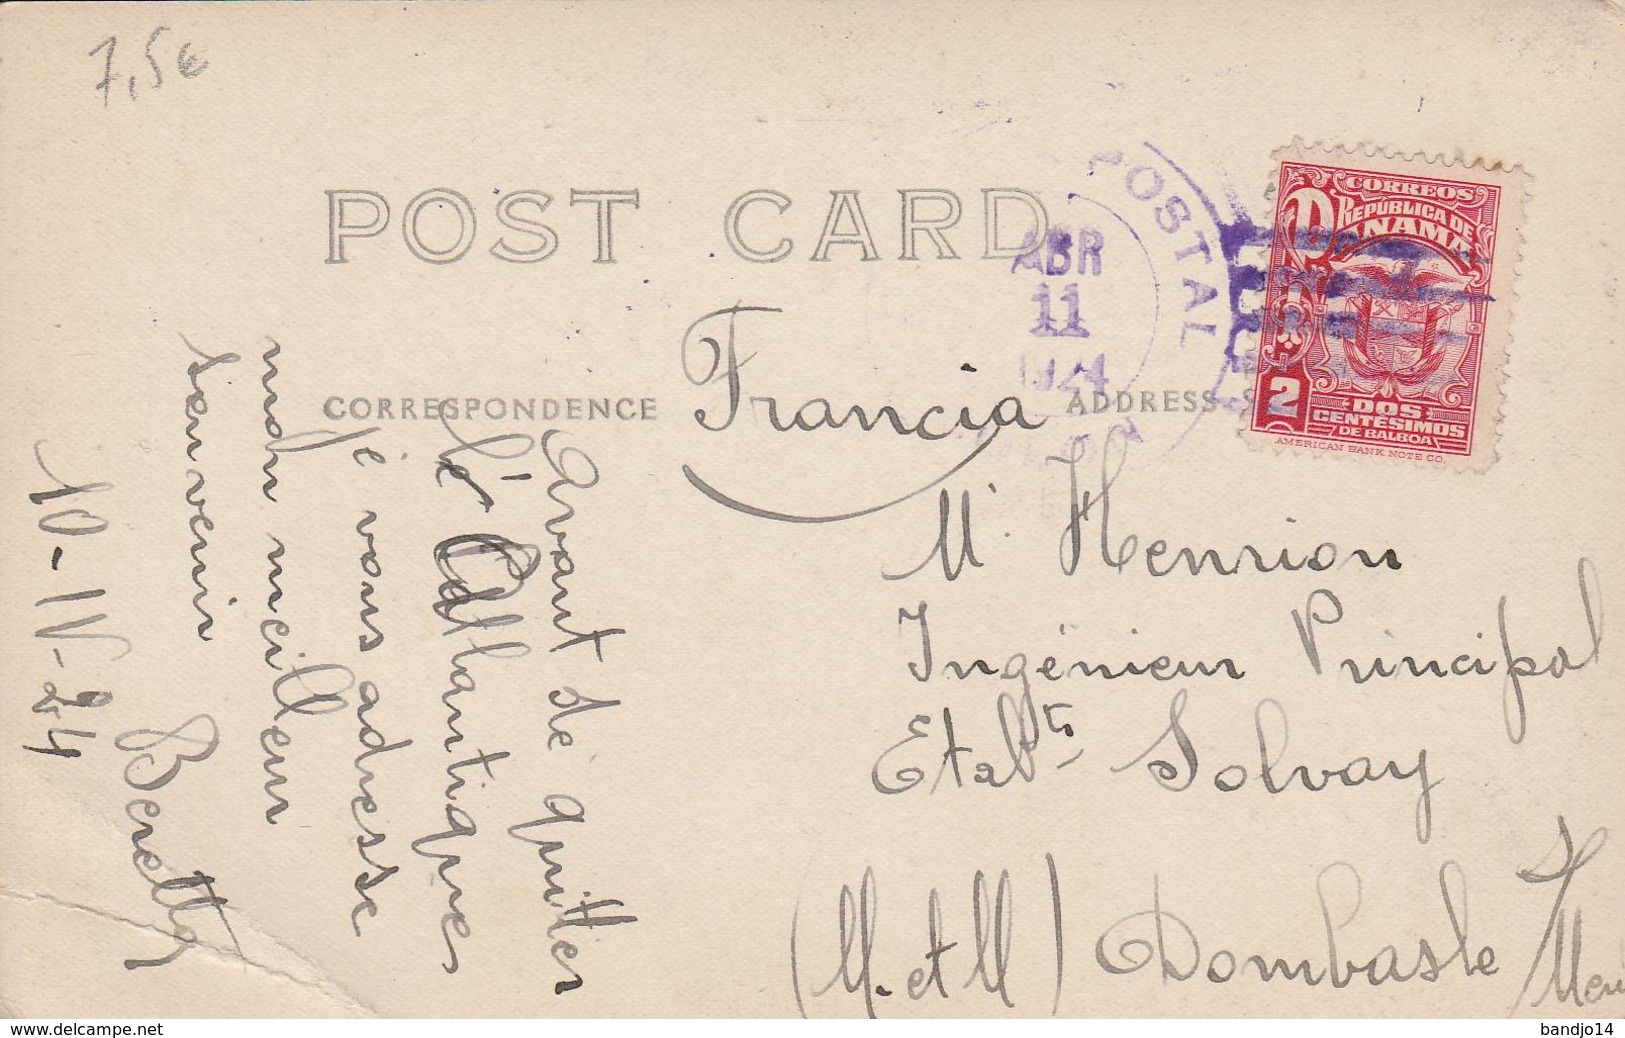 7,5€
POST CARD
CORREOS
REPÚBLICA DE
PANAMA
2
DOS
CENTÉSIMOS
DE BALBOA
AMERICAN BANK NOTE CO.
POSTAL
ABR
11
1924
CORRESPONDENCE
ADDRESS
Francia
Mr Henrion
Ingénieur Principal
Etabts Solvay
(M. et M) Dombasle s/
Avant de quitter
l'Atlantique
je vous adresse
mon meilleur
souvenir
Beretta
10-IV-24
www.delcampe.net
bandjo14